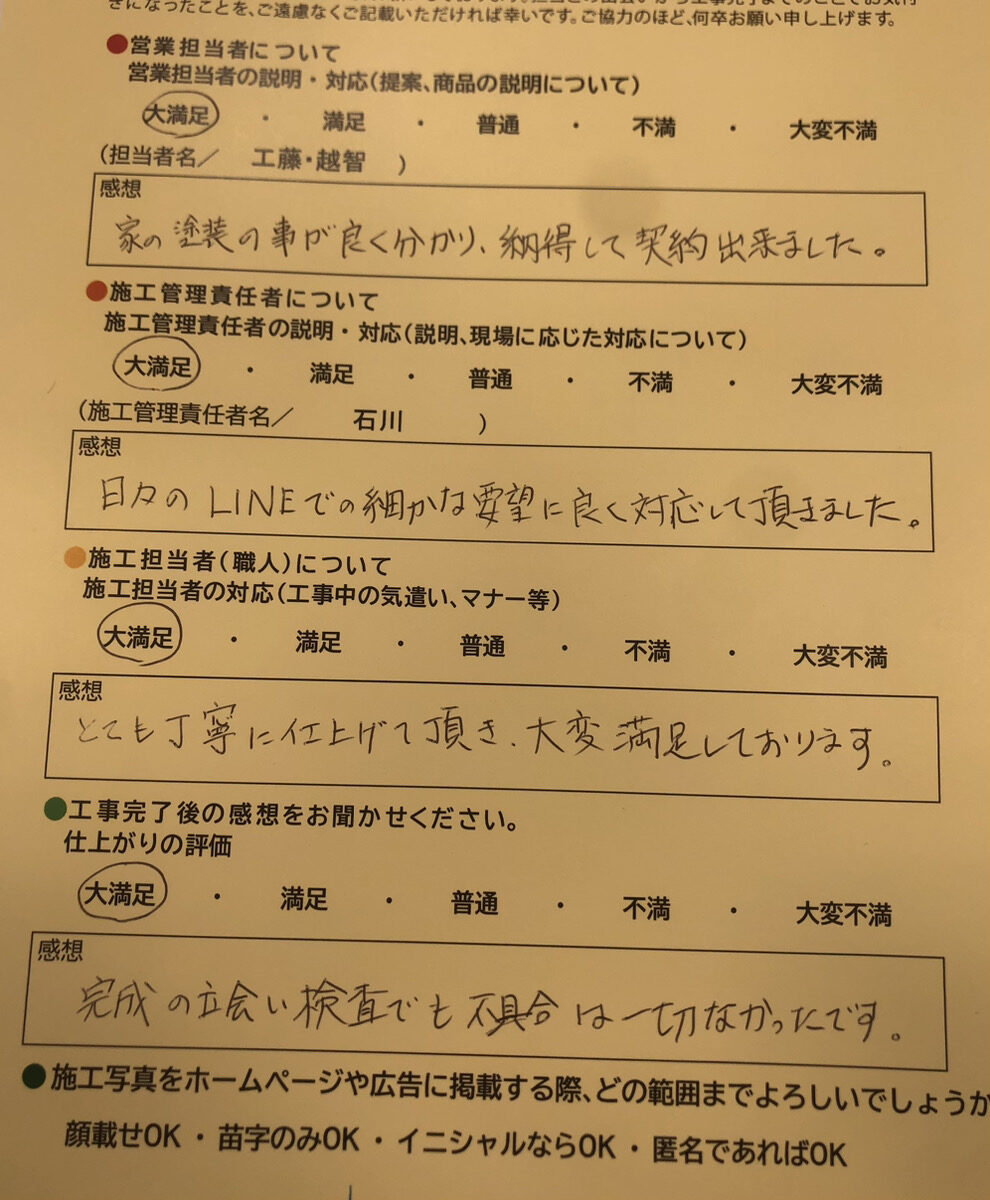 きになったことを、ご遠慮なくご記載いただければ幸いです。ご協力のほど、何卒お願い申し上げます。
●営業担当者について
営業担当者の説明・対応(提案、商品の説明について)
大満足 ・ 満足 ・ 普通 ・ 不満 ・ 大変不満
(担当者名／ 工藤・越智 )
感想
家の塗装の事が良く分かり、納得して契約出来ました。
●施工管理責任者について
施工管理責任者の説明・対応(説明、現場に応じた対応について)
大満足 ・ 満足 ・ 普通 ・ 不満 ・ 大変不満
(施工管理責任者名／ 石川 )
感想
日々のLINEでの細かな要望に良く対応して頂きました。
●施工担当者(職人)について
施工担当者の対応(工事中の気遣い、マナー等)
大満足 ・ 満足 ・ 普通 ・ 不満 ・ 大変不満
感想
とても丁寧に仕上げて頂き、大変満足しております。
●工事完了後の感想をお聞かせください。
仕上がりの評価
大満足 ・ 満足 ・ 普通 ・ 不満 ・ 大変不満
感想
完成の立会い検査でも不具合は一切なかったです。
●施工写真をホームページや広告に掲載する際、どの範囲までよろしいでしょうか
顔載せOK ・ 苗字のみOK ・ イニシャルならOK ・ 匿名であればOK